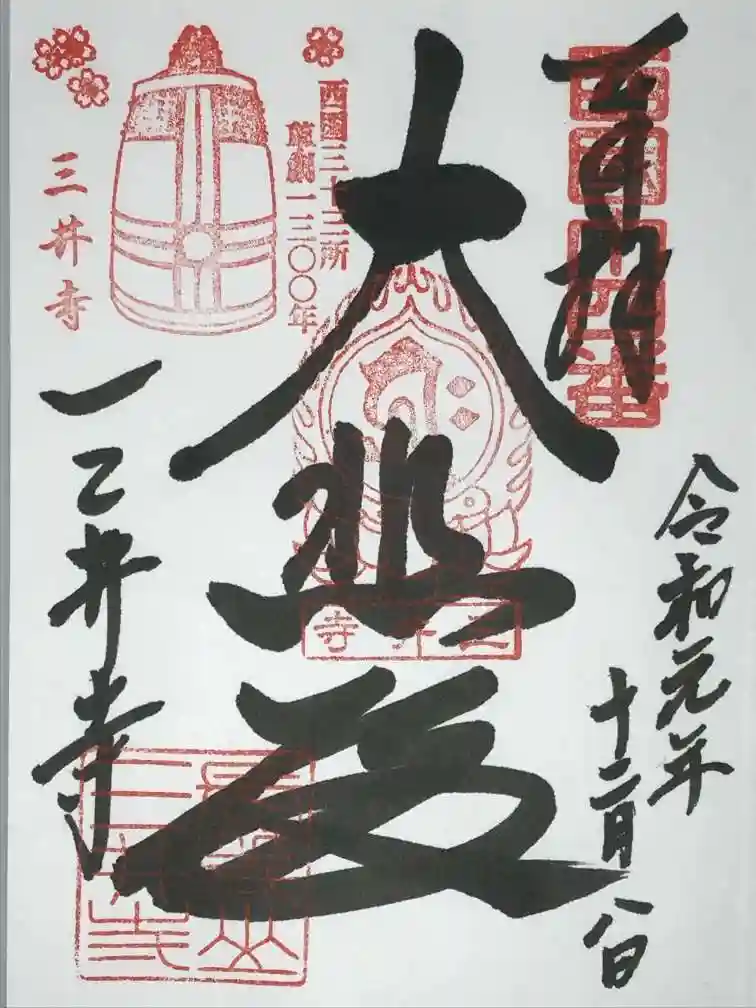 奉拝
西国十四番
令和元年
十二月八日
大悲殿
三井寺
西国三十三所
草創一三〇〇年
三井寺
三井寺
長等山
三井寺